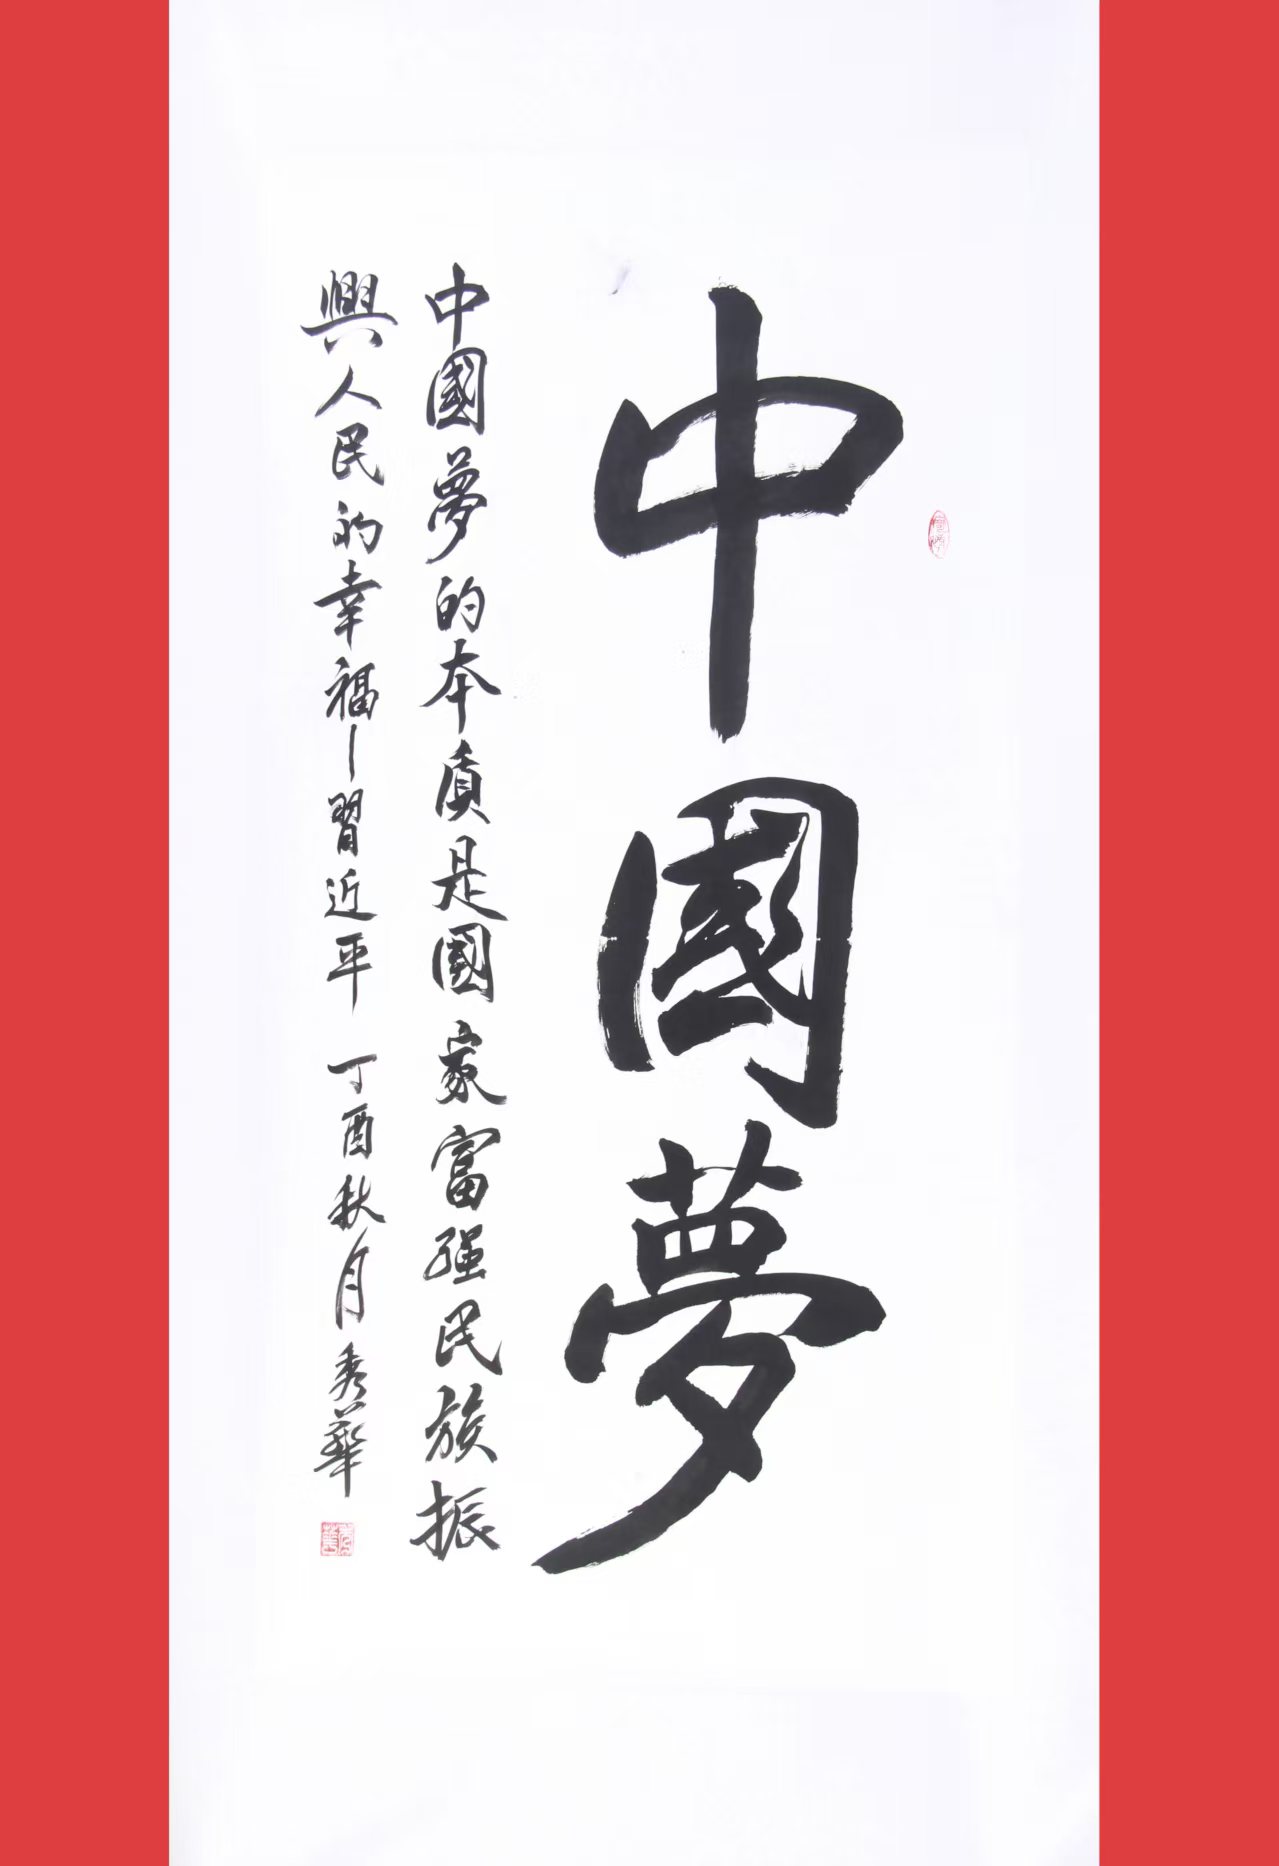 中國夢
中國夢的本质是國家富强民族振
興人民的幸福—習近平 丁酉秋月秀華